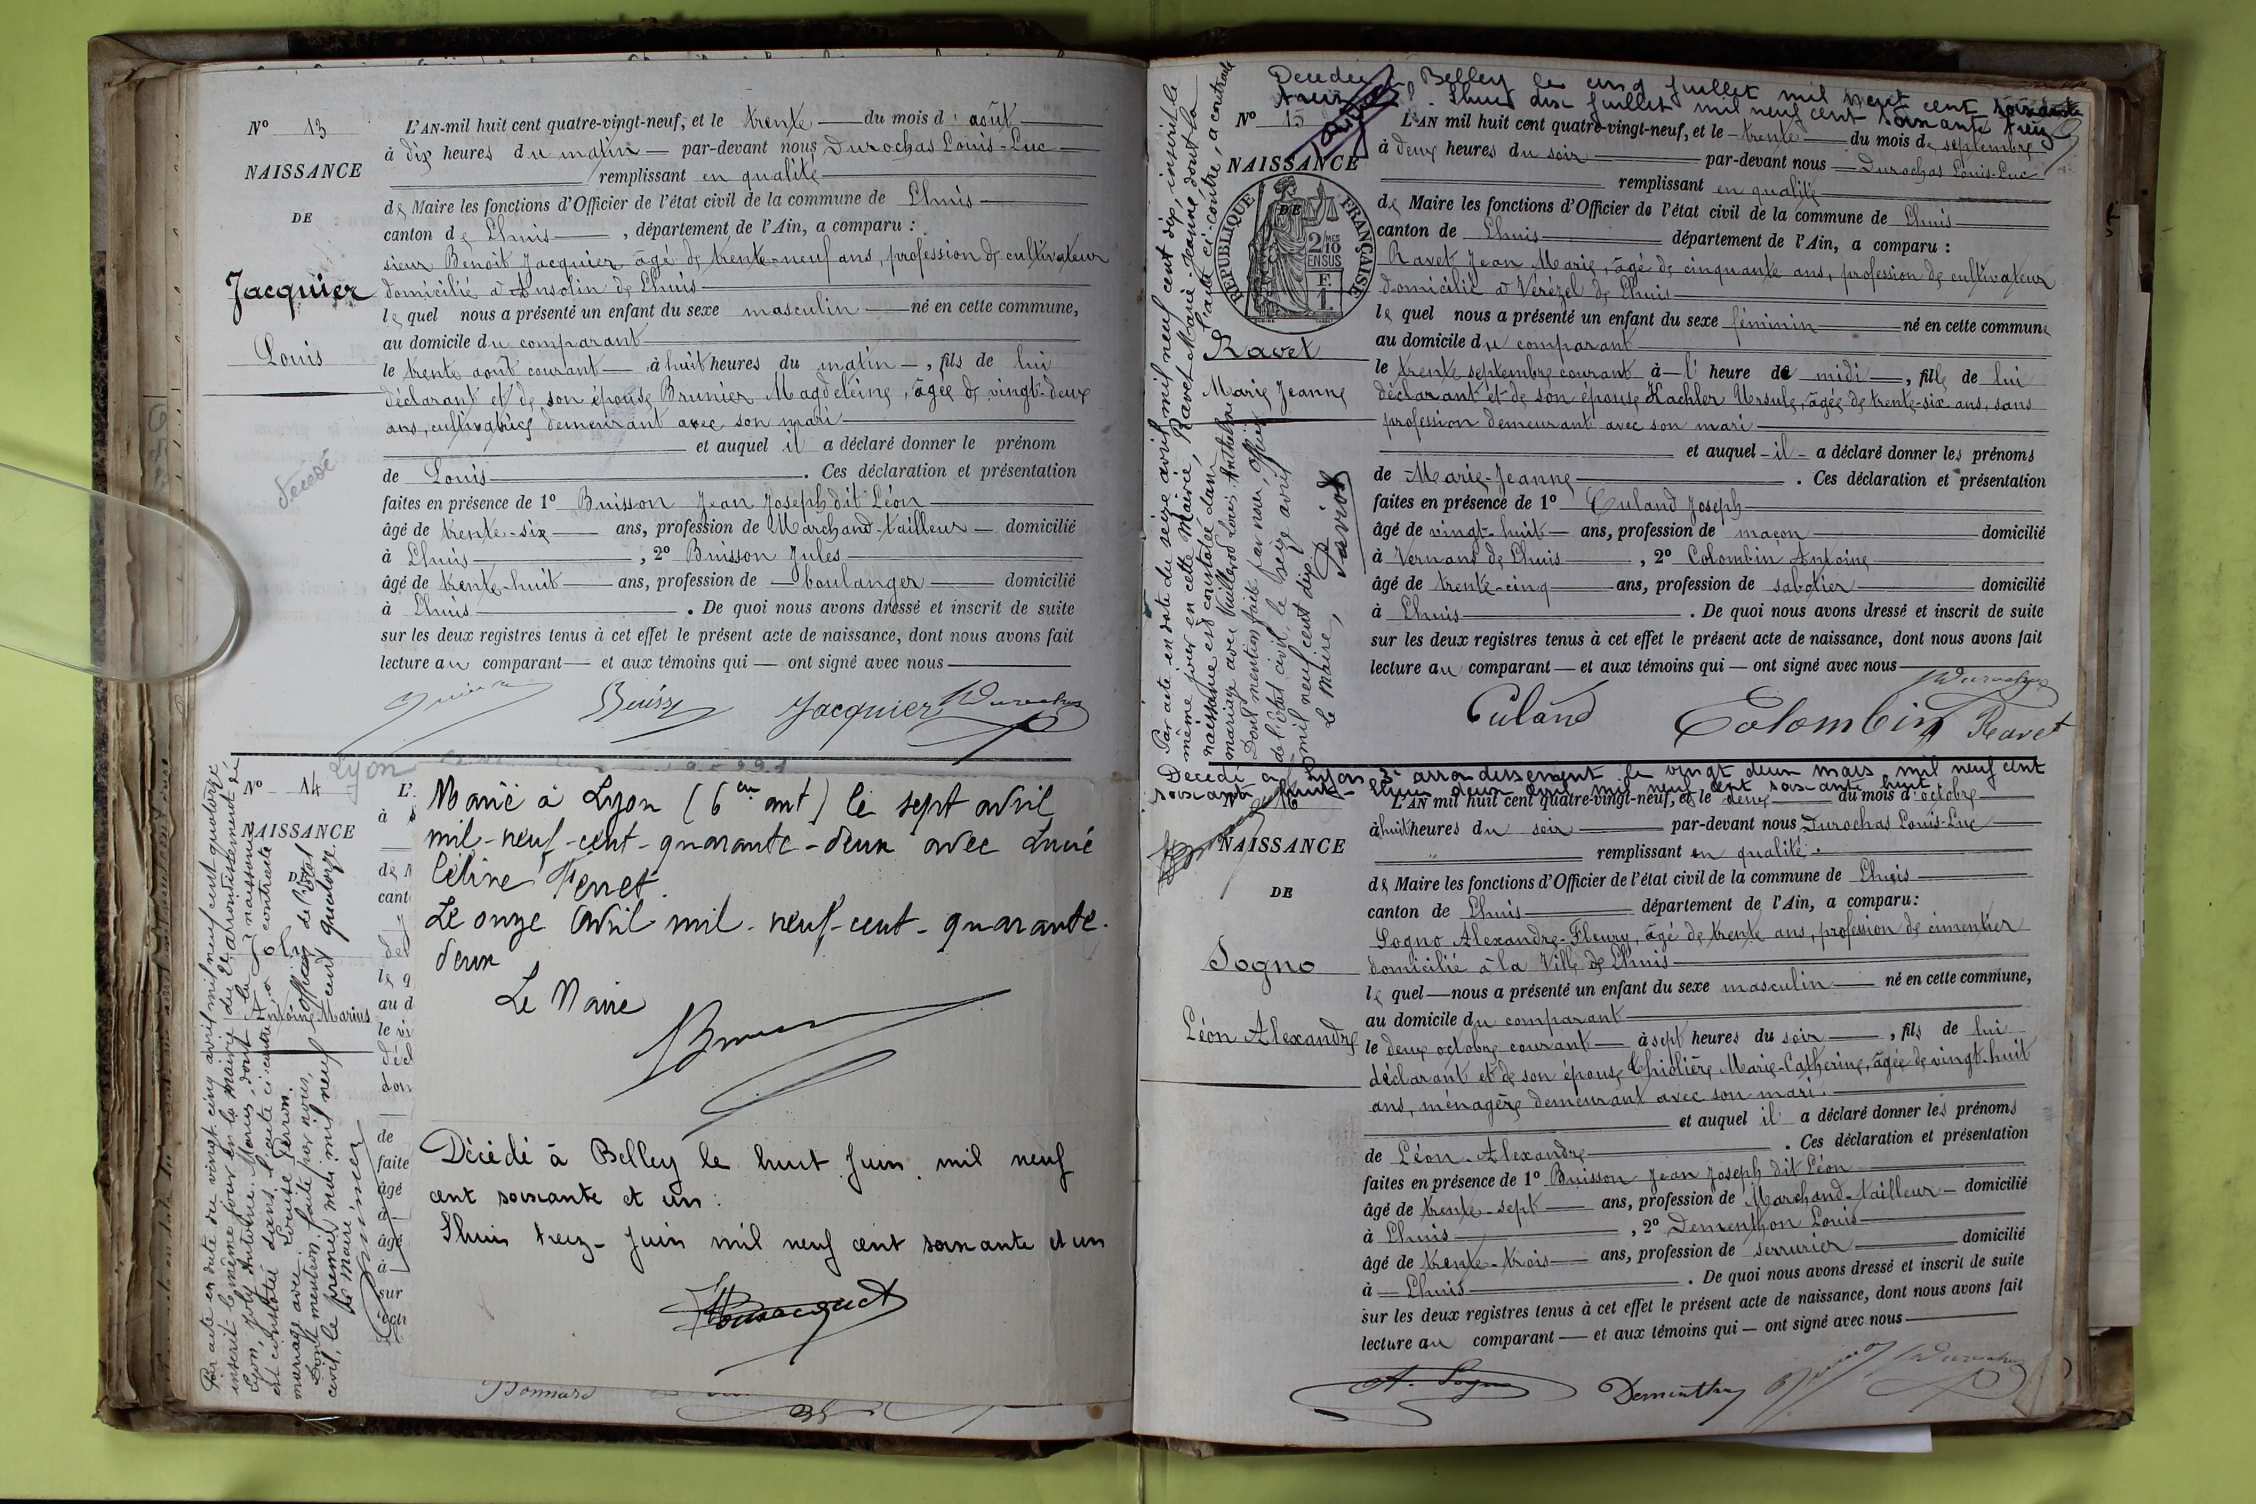 Nº 13
NAISSANCE
DE
Jacquier
Louis
décédé
L'AN mil huit cent quatre-vingt-neuf, et le trente du mois d'août
à dix heures du matin par-devant nous Durochas Louis-Luc
remplissant en qualité
de Maire les fonctions d'Officier de l'état civil de la commune de Lhuis
canton de Lhuis, département de l'Ain, a comparu :
sieur Benoit Jacquier âgé de trente-neuf ans, profession de cultivateur
domicilié à Ansolin de Lhuis
le quel nous a présenté un enfant du sexe masculin né en cette commune,
au domicile du comparant
le trente août courant à huit heures du matin, fils de lui
déclarant et de son épouse Brunier Magdeleine, âgée de vingt-deux
ans, cultivatrice demeurant avec son mari
et auquel il a déclaré donner le prénom
de Louis. Ces déclaration et présentation
faites en présence de 1º Buisson Jean Joseph dit Léon
âgé de trente-six ans, profession de Marchand-tailleur domicilié
à Lhuis, 2º Buisson Jules
âgé de trente-huit ans, profession de boulanger domicilié
à Lhuis. De quoi nous avons dressé et inscrit de suite
sur les deux registres tenus à cet effet le présent acte de naissance, dont nous avons fait
lecture au comparant et aux témoins qui ont signé avec nous
Jacquier Durochas
Lyon
Nº 14
NAISSANCE
DE
Antoine Marius
Par acte en date du vingt cinq avril mil neuf cent quatorze
inscrit le même jour en la mairie du 2e arrondissement de
Lyon, Joly Antoine Marius, dont la naissance
est constatée dans l'acte ci-contre a contracté
mariage avec Louise Perron.
Dont mention faite par nous, officier de l'état
civil, le premier mai mil neuf cent quatorze.
Le maire
Marié à Lyon (6em arrt) le sept avril
mil-neuf-cent-quarante-deux avec Lucie
Céline Ferret.
Le onze avril mil-neuf-cent-quarante-
deux
Le Maire
Décédé à Belley le huit juin mil neuf
cent soixante et un :
Lhuis treize juin mil neuf cent soixante et un
Bonnard
Décédée à Belley le cinq juillet mil neuf cent soixante
treize. Lhuis dix juillet mil neuf cent soixante treize
Nº 15
NAISSANCE
DE
RÉPUBLIQUE FRANÇAISE
2/10 EN SUS
Ravet
Marie Jeanne
Par acte en date du seize avril mil neuf cent dix, inscrit le
même jour en cette Mairie, Ravet Marie Jeanne dont la
naissance est constatée dans l'acte ci-contre, a contracté
mariage avec Vaillard Louis Anthelme
Dont mention faite par nous, officier
de l'état civil, le seize avril
mil neuf cent dix.
Le Maire,
L'AN mil huit cent quatre-vingt-neuf, et le trente du mois de septembre
à deux heures du soir par-devant nous Durochas Louis-Luc
remplissant en qualité
de Maire les fonctions d'Officier de l'état civil de la commune de Lhuis
canton de Lhuis département de l'Ain, a comparu :
Ravet Jean Marie, âgé de cinquante ans, profession de cultivateur
domicilié à Vérizel de Lhuis
le quel nous a présenté un enfant du sexe féminin né en cette commune
au domicile du comparant
le trente septembre courant à l'heure de midi, fille de lui
déclarant et de son épouse Kachler Ursule, âgée de trente-six ans, sans
profession demeurant avec son mari
et auquel il a déclaré donner les prénoms
de Marie-Jeanne. Ces déclaration et présentation
faites en présence de 1º Culand Joseph
âgé de vingt-huit ans, profession de maçon domicilié
à Vernans de Lhuis, 2º Colombin Antoine
âgé de trente-cinq ans, profession de sabotier domicilié
à Lhuis. De quoi nous avons dressé et inscrit de suite
sur les deux registres tenus à cet effet le présent acte de naissance, dont nous avons fait
lecture au comparant et aux témoins qui ont signé avec nous
Durochas
Culand Colombin Ravet
Décédé à Lyon 3e arrondissement le vingt deux mars mil neuf cent
soixante huit - Lhuis deux avril mil neuf cent soixante huit
Nº 16
NAISSANCE
DE
Sogno
Léon Alexandre
L'AN mil huit cent quatre-vingt-neuf, et le deux du mois d'octobre
à huit heures du soir par-devant nous Durochas Louis-Luc
remplissant en qualité
de Maire les fonctions d'Officier de l'état civil de la commune de Lhuis
canton de Lhuis département de l'Ain, a comparu :
Sogno Alexandre-Fleury, âgé de trente ans, profession de cimentier
domicilié à la Ville de Lhuis
le quel nous a présenté un enfant du sexe masculin né en cette commune,
au domicile du comparant
le deux octobre courant à sept heures du soir, fils de lui
déclarant et de son épouse Thiolière Marie-Catherine, âgée de vingt-huit
ans, ménagère demeurant avec son mari.
et auquel il a déclaré donner les prénoms
de Léon-Alexandre. Ces déclaration et présentation
faites en présence de 1º Buisson Jean Joseph dit Léon
âgé de trente-sept ans, profession de Marchand-tailleur domicilié
à Lhuis, 2º Dementhon Louis
âgé de trente-trois ans, profession de serrurier domicilié
à Lhuis. De quoi nous avons dressé et inscrit de suite
sur les deux registres tenus à cet effet le présent acte de naissance, dont nous avons fait
lecture au comparant et aux témoins qui ont signé avec nous
A. Sogno Dementhon Durochas